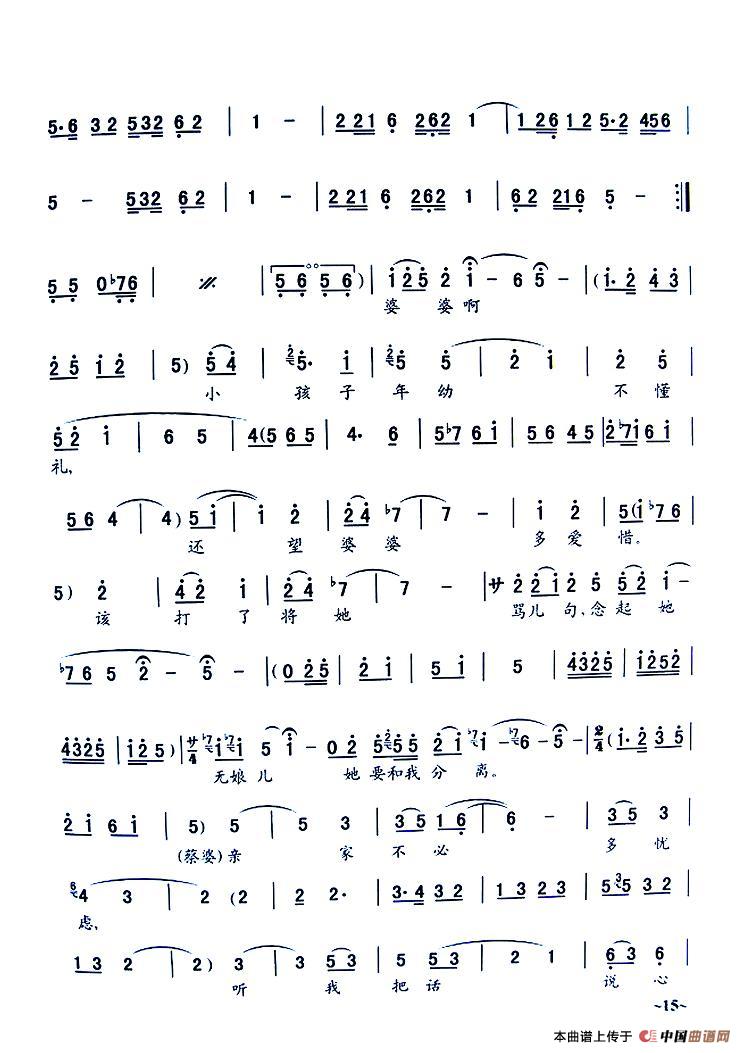 5·6 32 532 62 | 1 - | 2 221 6 262 1 | 1 26 12 5·2 456 |
5 - 532 62 | 1 - | 2 221 6 262 1 | 62 216 5 - :|
5 5 0♭76 | 〃 | (56 56) | i25 2 i - 6 5 - (i·2 43 |
婆 婆 啊
25 i2 | 5) 54 | 5· i | 2 5 5 | 2 i | 2 5 |
小 孩 子 年 幼 不 懂
52 i | 6 5 | 4(5 65 | 4· 6 | 5♭7 6i | 56 45 | 2♭7i 6i |
礼,
56 4 | 4) 5i | i 2 | 24 ♭7 | 7 - | i 2 | 5(i ♭76 |
还 望 婆 婆 多 爱 惜。
5) 2 | 42 i | 24 ♭7 | 7 - | サ 2 2i 2 5 52 i -
该 打 了 将 她 骂儿 句,念 起 她
♭76 5 2 - 5 - | (0 25 | 2i | 5 i | 5 | 4325 | i252 |
4325 | i25) | サ i i 5 i - 02 5 55 2i i - 6 - 5 - 2/4 (i·2 35 |
无娘儿 她 要和我 分 离。
2i 6i | 5) 5 | 5 3 | 35 16 | 6 | 35 3 |
(蔡婆)亲 家 不 必 多 忧
4 3 | 2 (2 | 2 2· | 3·4 32 | 1 3 23 | 5 5 32 |
虑,
13 2 | 2) 3 | 35 3 | 5 53 | 2 1 | 63 6 |
听 我 把 话 说 心
~15~
本曲谱上传于 中国曲谱网